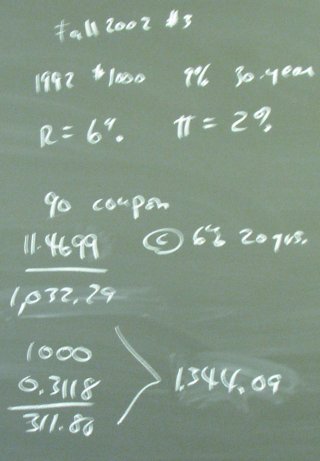 Fall 2002 #3
1992 $1000 9% 30-year
R = 6% π = 2%
90 coupon
11.4699 @ 6% 20 yrs.
1,032.29
1000
0.3118 1,344.09
311.80